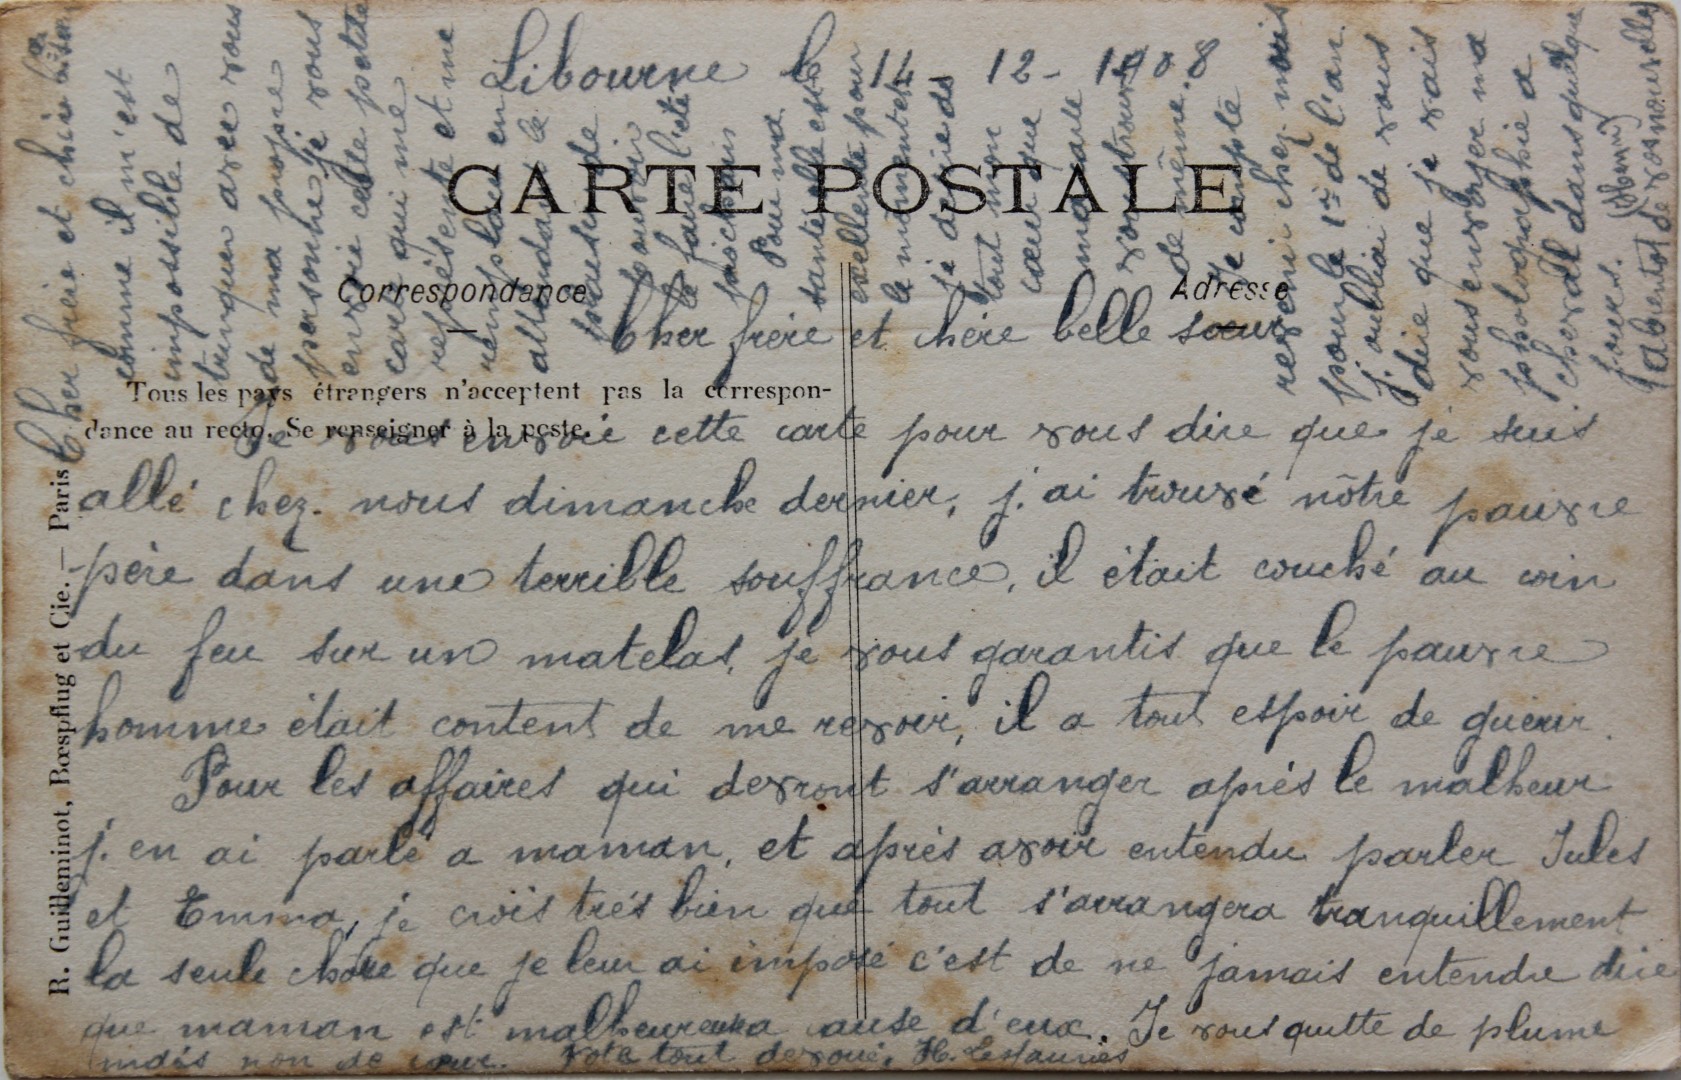 Libourne le 14-12-1908
CARTE POSTALE
Correspondance
Adresse
Cher frère et chère belle sœur
Tous les pays étrangers n'acceptent pas la correspon-
dance au recto. Se renseigner à la poste.
Je vous envoie cette carte pour vous dire que je suis
allé chez. nous dimanche dernier, j.ai trouvé nôtre pauvre
père dans une terrible souffrance, il était couché au coin
du feu sur un matelas, je vous garantis que le pauvre
homme était content de me revoir, il a tout espoir de guérir.
Pour les affaires qui devront s'arranger après le malheur
j.en ai parlé a maman, et après avoir entendu parler Jules
et Emma, je crois trés bien que tout s'arrangera tranquillement
la seule chose que je leur ai imposé c'est de ne jamais entendre dire
que maman est malheureuse a cause d'eux. Je vous quitte de plume
mais non de cœur. Vote tout devoué, H. Lestauriès
R. Guilleminot, Bœspflug et Cie. — Paris
Cher frère et chère
comme il m'est
impossible de
trinquer avec vous
de ma propre
personne, je vous
envoie cette petite
carte qui me
représente et me
remplace en
attendant le
plaisir de
pouvoir
le faire l'été
prochain
Pour ma
santé elle est
excellente pour
le moment et
je désire de
tout mon
cœur que
ma carte
vous trouve
de même.
Je compte
revenir chez. mois
pour le 1er de l'an.
j.oubliai de vous
dire que je vais
vous envoyer ma
photographie a
cheval dans quelque
jours.
a bientot de vos nouvelles